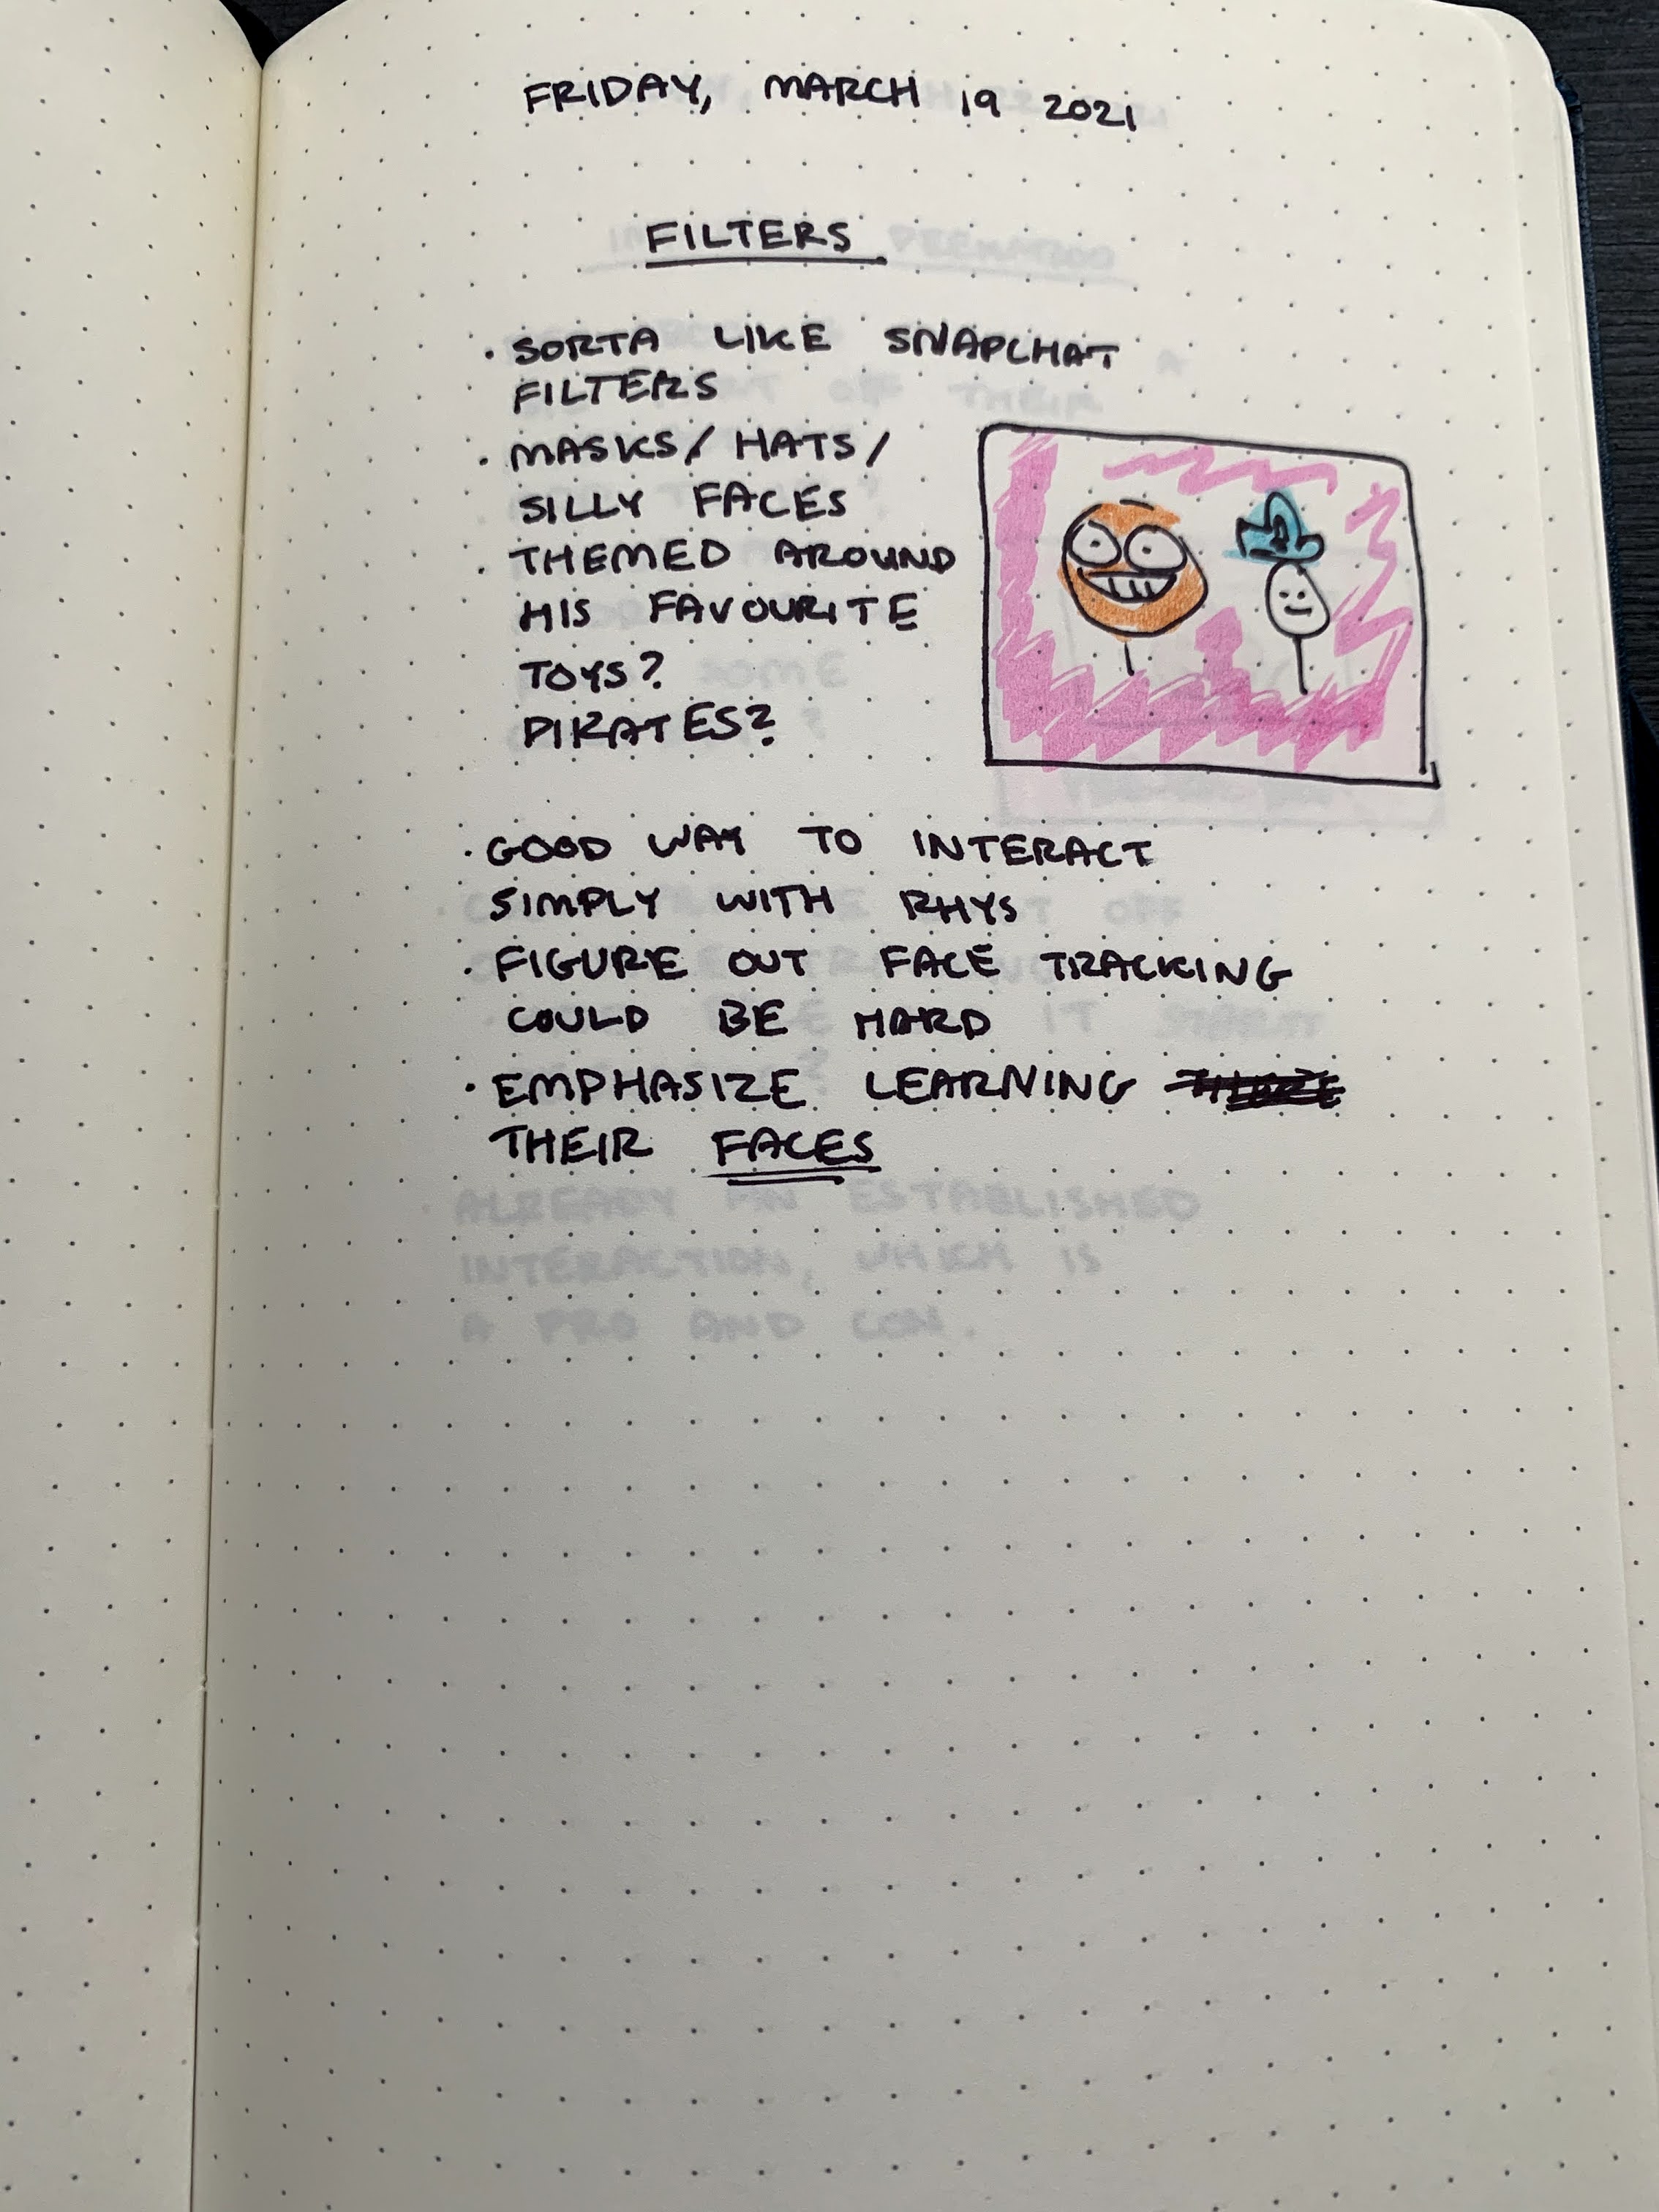 FRIDAY, MARCH 19 2021
FILTERS
· SORTA LIKE SNAPCHAT
FILTERS
· MASKS/ HATS/
SILLY FACES
· THEMED AROUND
HIS FAVOURITE
TOYS?
PIRATES?
· GOOD WAY TO INTERACT
SIMPLY WITH RHYS
· FIGURE OUT FACE TRACKING
COULD BE HARD
· EMPHASIZE LEARNING
THEIR FACES
· ALREADY AN ESTABLISHED
INTERACTION, WHICH IS
A PRO AND CON.